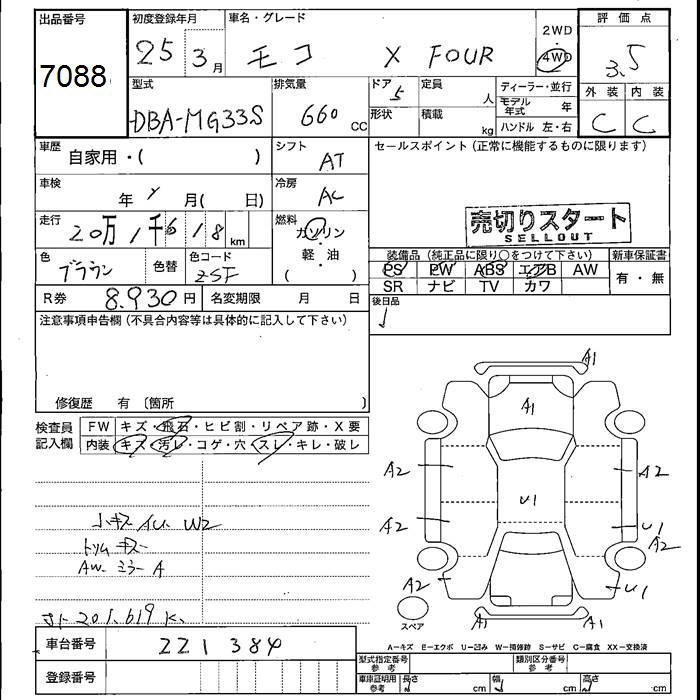 出品番号
7088
初度登録年月
25年 3月
車名・グレード
モコ X FOUR
2WD
4WD
評価点
3.5
外装 内装
C C
型式
DBA-MG33S
排気量
660 CC
ドア 5
形状
定員 人
積載 kg
ディーラー・並行
モデル年式 年
ハンドル 左・右
車歴
自家用・( )
シフト
AT
セールスポイント(正常に機能するものに限ります)
車検
年 月( 日)
冷房
AC
走行
20万1千618km
燃料
ガソリン
軽・油
( )
売切りスタート
SELLOUT
色
ブラウン
色替
色コード
ZSF
装備品(純正品に限り○をつけて下さい)
新車保証書
PS PW ABS エアB AW
SR ナビ TV カワ
有・無
R券 8.930円
名変期限 月 日
後日品
注意事項申告欄(不具合内容等は具体的に記入して下さい)
修復歴 有 〔箇所 〕
検査員
記入欄
FW キズ・飛石・ヒビ割・リペア跡・X要
内装 キズ・汚レ・コゲ・穴・スレ・キレ・破レ
小キズ AU W2
トリム キズ
AW ミラーA
201.619K
A1
A1
A2 A2
U1
A2 U1
A2
A2 U1
A1 A1
スペア
A-キズ E-エクボ U-凹み W-補修跡 S-サビ C-腐食 XX-交換済
車台番号
221384
登録番号
型式指定番号
参考
類別区分番号
参考
車庫証明用
参考
長さ cm
幅 cm
高さ cm